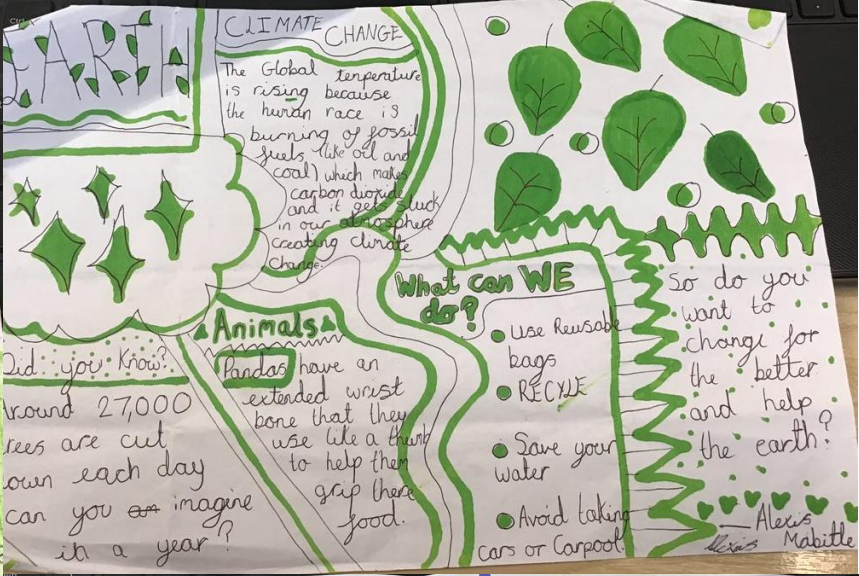 EARTH
CLIMATE CHANGE
The Global temperature
is rising because
the human race is
burning of fossil
fuels (like oil and
coal) which makes
carbon dioxide
and it gets stuck
in our atmosphere
creating climate
change.
Did you know?
Around 27,000
trees are cut
down each day
can you an imagine
in a year?
Animals
Pandas have an
extended wrist
bone that they
use like a thumb
to help them
grip there
food.
What can WE
do?
Use Reusable
bags
RECYLE
Save your
water
Avoid taking
cars or Carpool.
So do you
want to
change for
the better
and help
the earth?
Alexis
Mabitle
Alexis